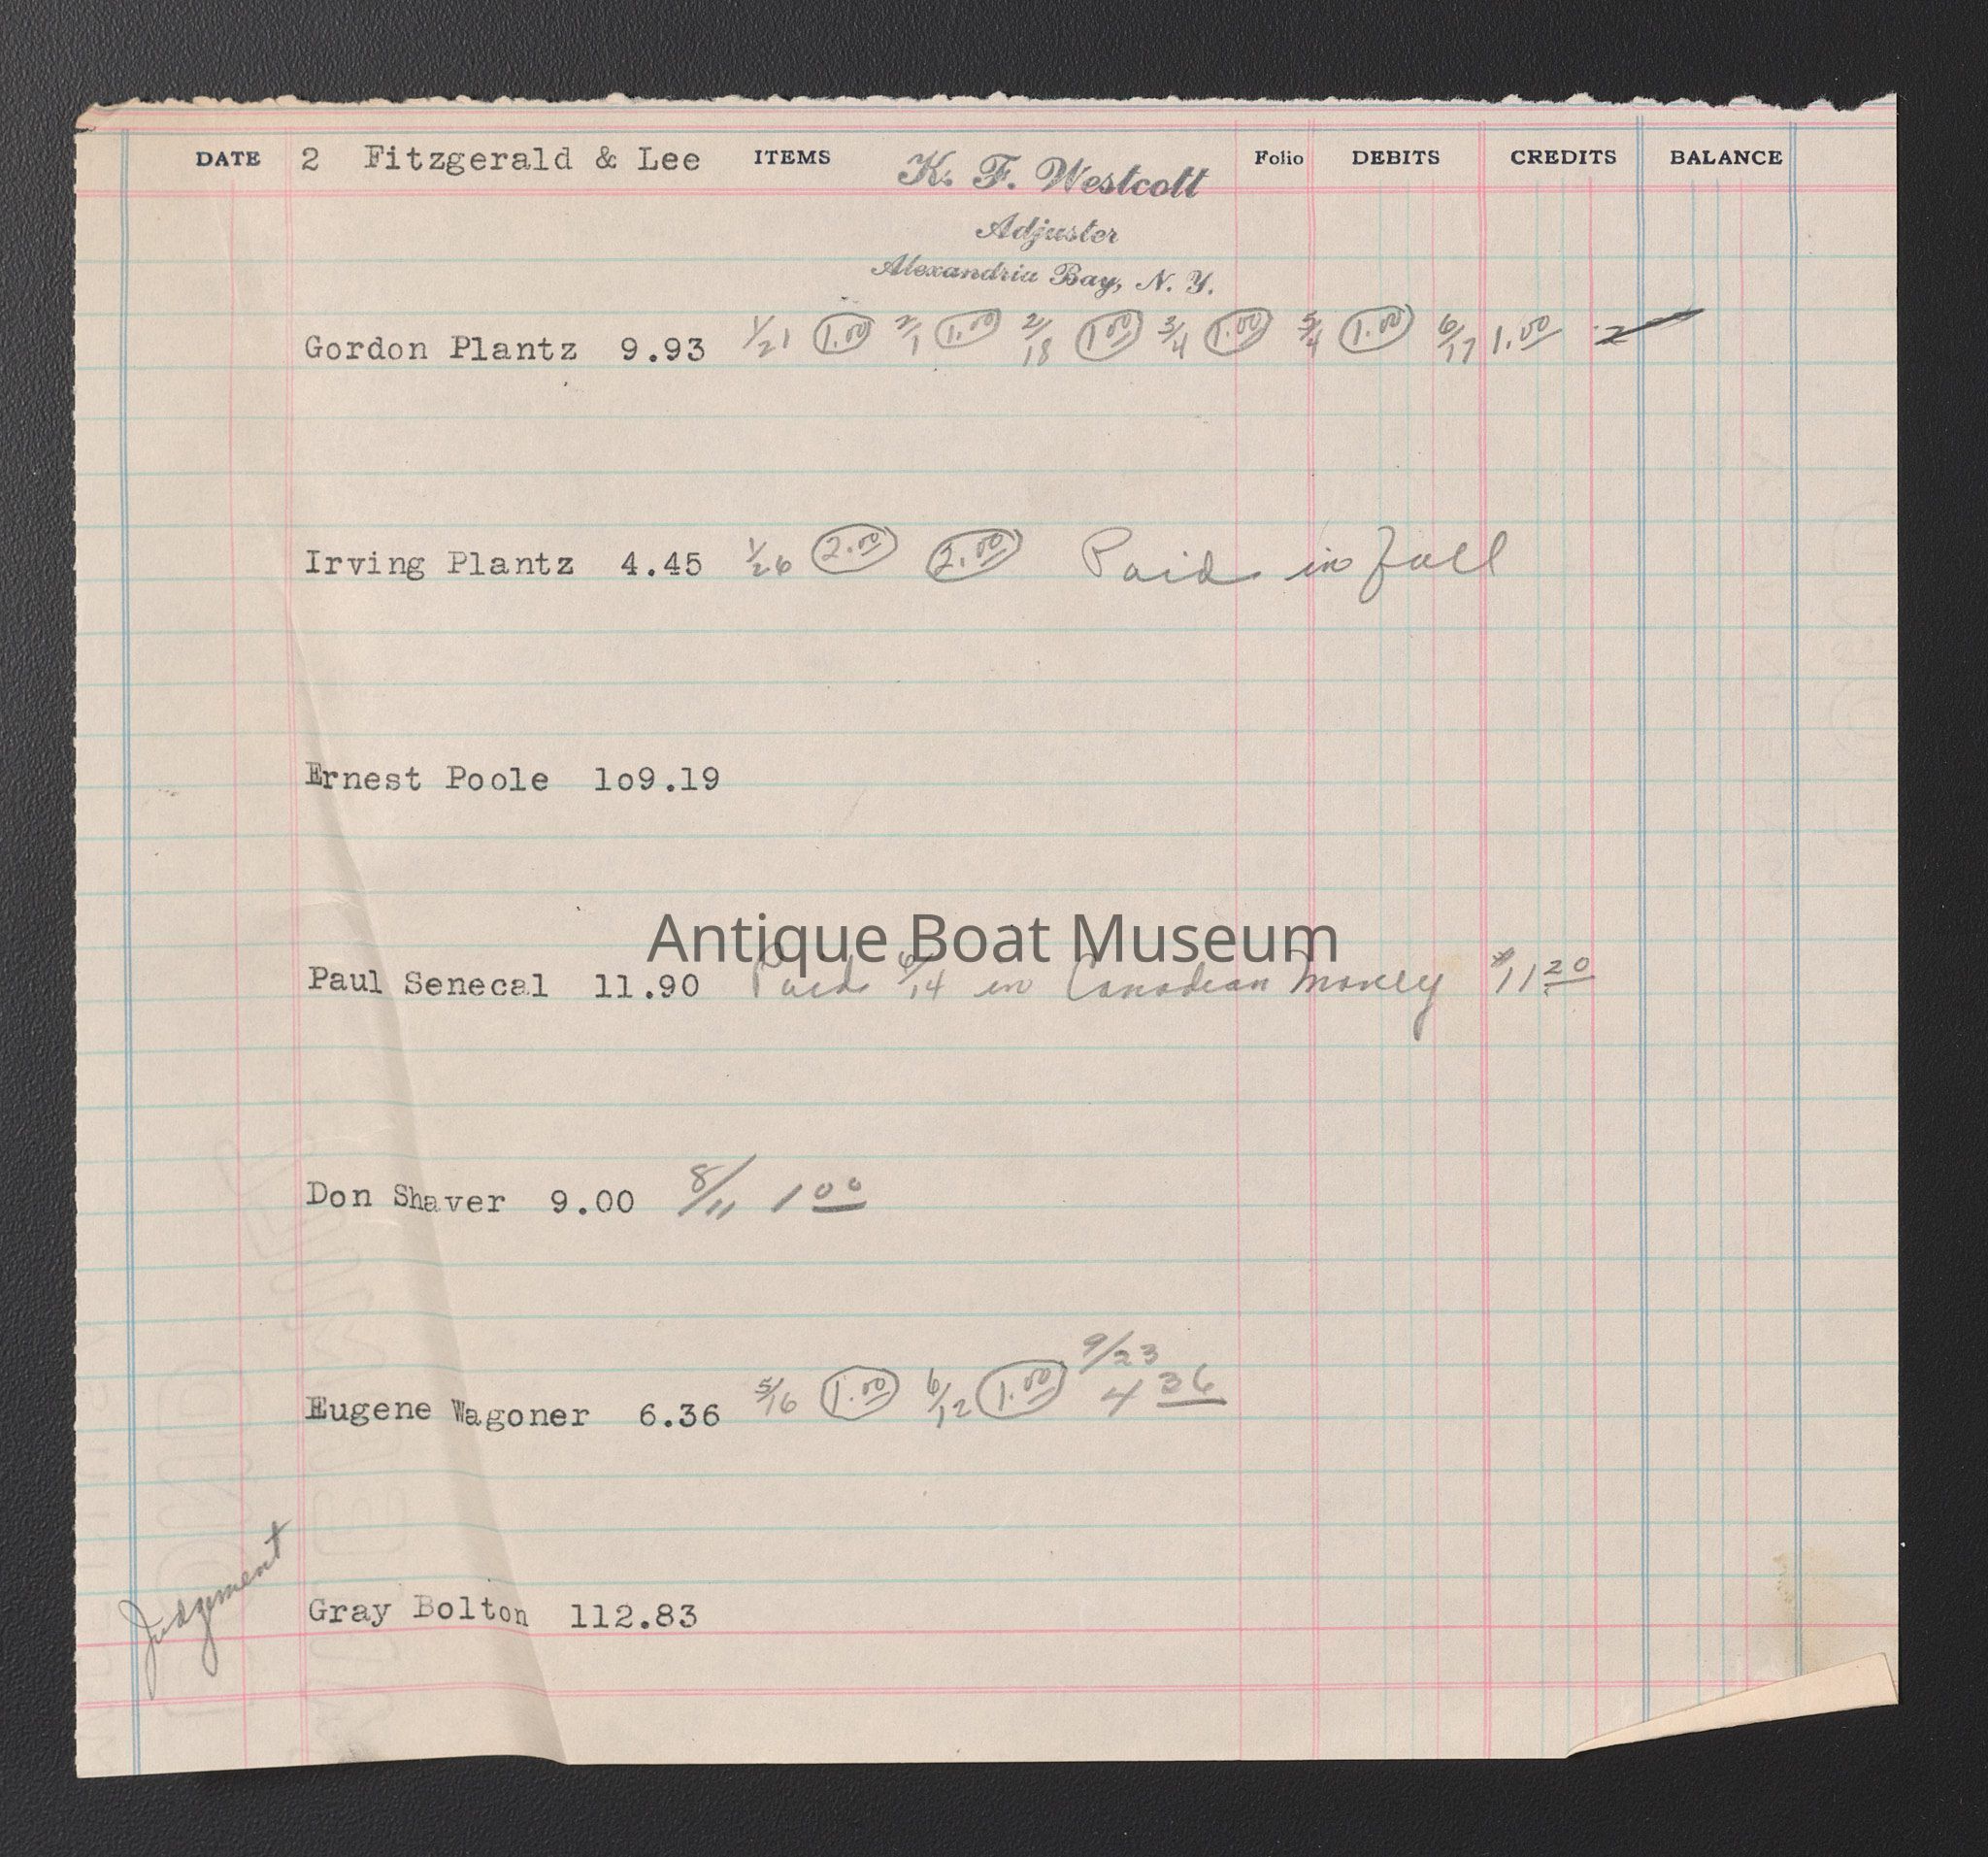 DATE 2 Fitzgerald & Lee ITEMS Folio DEBITS CREDITS BALANCE
K. F. Westcott
Adjuster
Alexandria Bay, N. Y.
Gordon Plantz 9.93 1/21 1.00 2/1 1.00 2/18 1.00 3/4 1.00 5/4 1.00 6/17 1.00
Irving Plantz 4.45 1/26 2.00 2.00 Paid in full
Ernest Poole 1o9.19
Antique Boat Museum
Paul Senecal 11.90 Paid 6/14 in Canadian Money $11 20
Don Shaver 9.00 8/11 1 00
9/23
Eugene Wagoner 6.36 5/16 1.00 6/12 1.00 4 36
Judgment
Gray Bolton 112.83